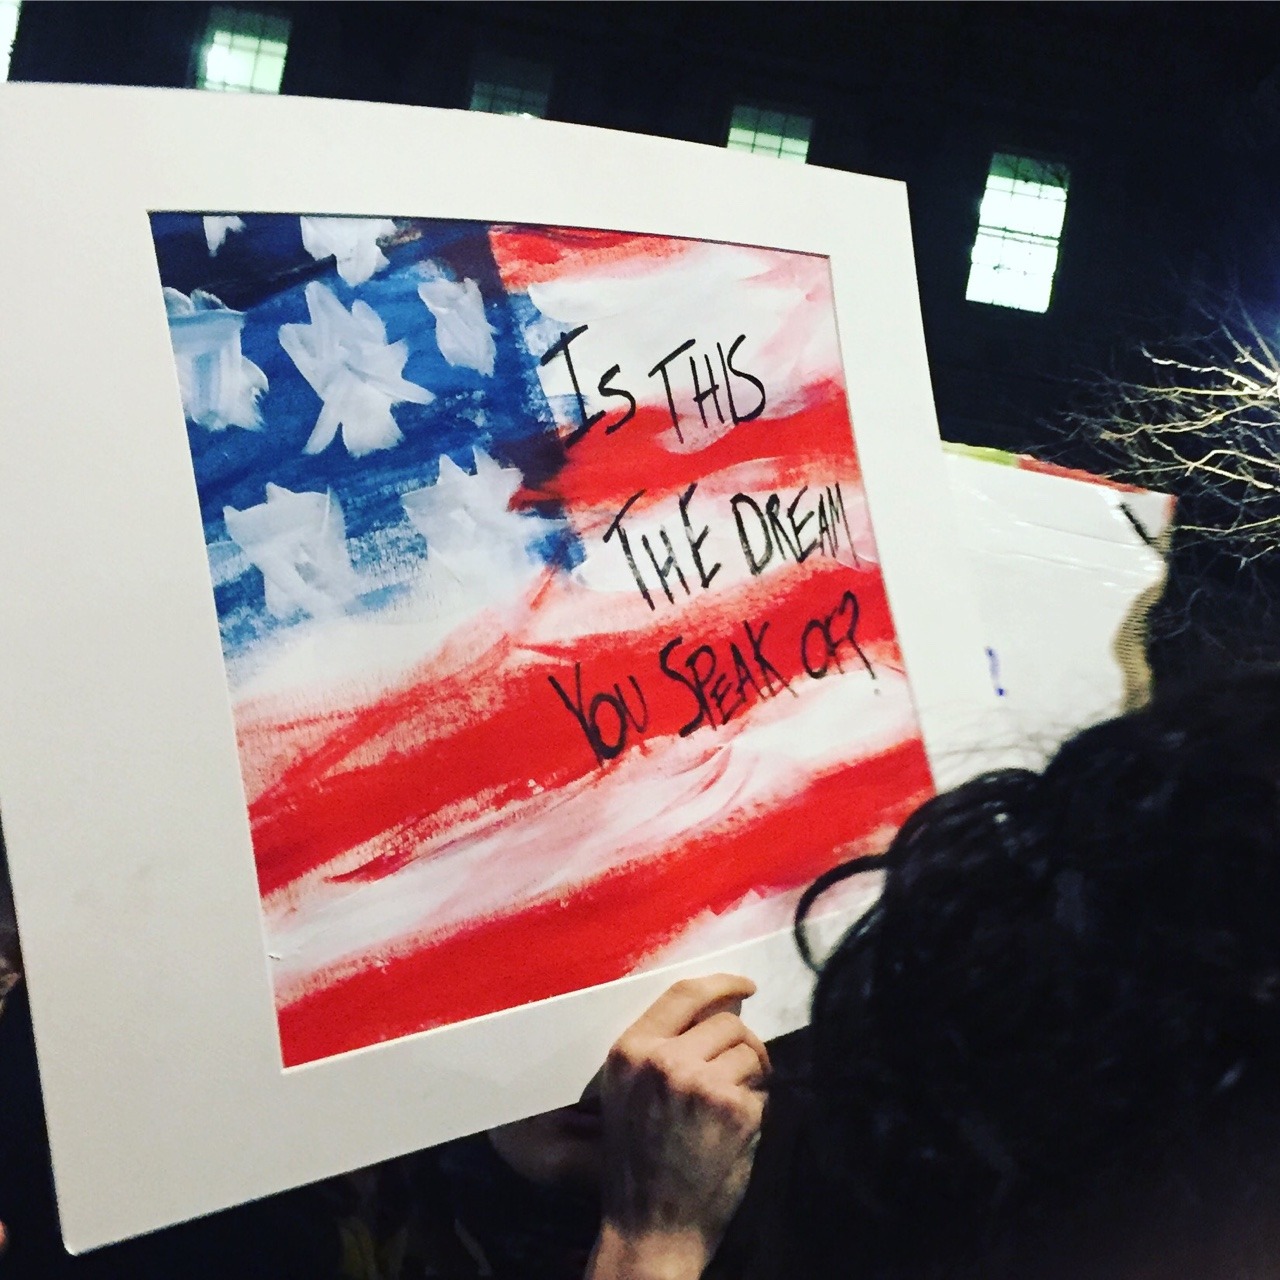 Is THIS
THE DREAM
YOU SPEAK OF?